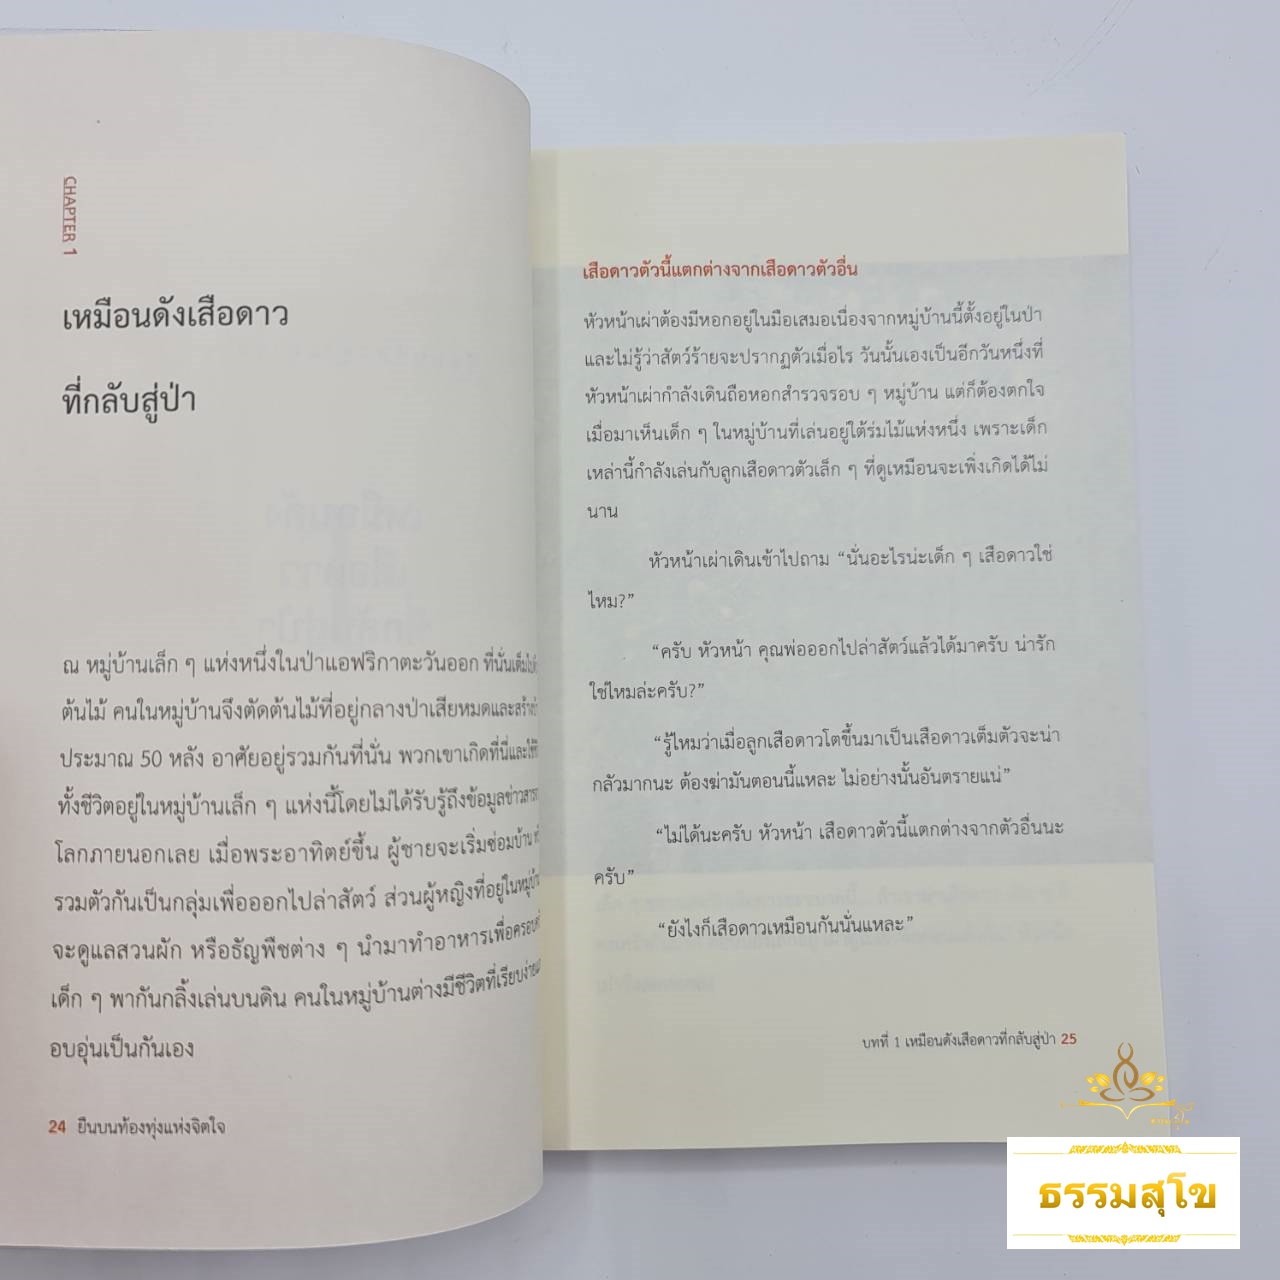 CHAPTER 1
เหมือนดังเสือดาว
ที่กลับสู่ป่า
ณ หมู่บ้านเล็ก ๆ แห่งหนึ่งในป่าแอฟริกาตะวันออก ที่นั่นเต็มไปด้
ต้นไม้ คนในหมู่บ้านจึงตัดต้นไม้ที่อยู่กลางป่าเสียหมดและสร้าง
ประมาณ 50 หลัง อาศัยอยู่รวมกันที่นั่น พวกเขาเกิดที่นี่และใช้
ทั้งชีวิตอยู่ในหมู่บ้านเล็ก ๆ แห่งนี้โดยไม่ได้รับรู้ถึงข้อมูลข่าวสาร
โลกภายนอกเลย เมื่อพระอาทิตย์ขึ้น ผู้ชายจะเริ่มซ่อมบ้าน
รวมตัวกันเป็นกลุ่มเพื่อออกไปล่าสัตว์ ส่วนผู้หญิงที่อยู่ในหมู่บ้าน
จะดูแลสวนผัก หรือธัญพืชต่าง ๆ นำมาทำอาหารเพื่อครอบครั
เด็ก ๆ พากันกลิ้งเล่นบนดิน คนในหมู่บ้านต่างมีชีวิตที่เรียบง่าย
อบอุ่นเป็นกันเอง
24 ยืนบนท้องทุ่งแห่งจิตใจ
เสือดาวตัวนี้แตกต่างจากเสือดาวตัวอื่น
หัวหน้าเผ่าต้องมีหอกอยู่ในมือเสมอเนื่องจากหมู่บ้านนี้ตั้งอยู่ในป่า
และไม่รู้ว่าสัตว์ร้ายจะปรากฏตัวเมื่อไร วันนั้นเองเป็นอีกวันหนึ่งที่
หัวหน้าเผ่ากำลังเดินถือหอกสำรวจรอบ ๆ หมู่บ้าน แต่ก็ต้องตกใจ
เมื่อมาเห็นเด็ก ๆ ในหมู่บ้านที่เล่นอยู่ใต้ร่มไม้แห่งหนึ่ง เพราะเด็ก
เหล่านี้กำลังเล่นกับลูกเสือดาวตัวเล็ก ๆ ที่ดูเหมือนจะเพิ่งเกิดได้ไม่
นาน
หัวหน้าเผ่าเดินเข้าไปถาม “นั่นอะไรน่ะเด็ก ๆ เสือดาวใช่
ไหม?”
“ครับ หัวหน้า คุณพ่อออกไปล่าสัตว์แล้วได้มาครับ น่ารัก
ใช่ไหมล่ะครับ?”
“รู้ไหมว่าเมื่อลูกเสือดาวโตขึ้นมาเป็นเสือดาวเต็มตัวจะน่า
กลัวมากนะ ต้องฆ่ามันตอนนี้แหละ ไม่อย่างนั้นอันตรายแน่”
“ไม่ได้นะครับ หัวหน้า เสือดาวตัวนี้แตกต่างจากตัวอื่นนะ
ครับ”
“ยังไงก็เสือดาวเหมือนกันนั่นแหละ”
บทที่ 1 เหมือนดังเสือดาวที่กลับสู่ป่า 25
ธรรมสุโข